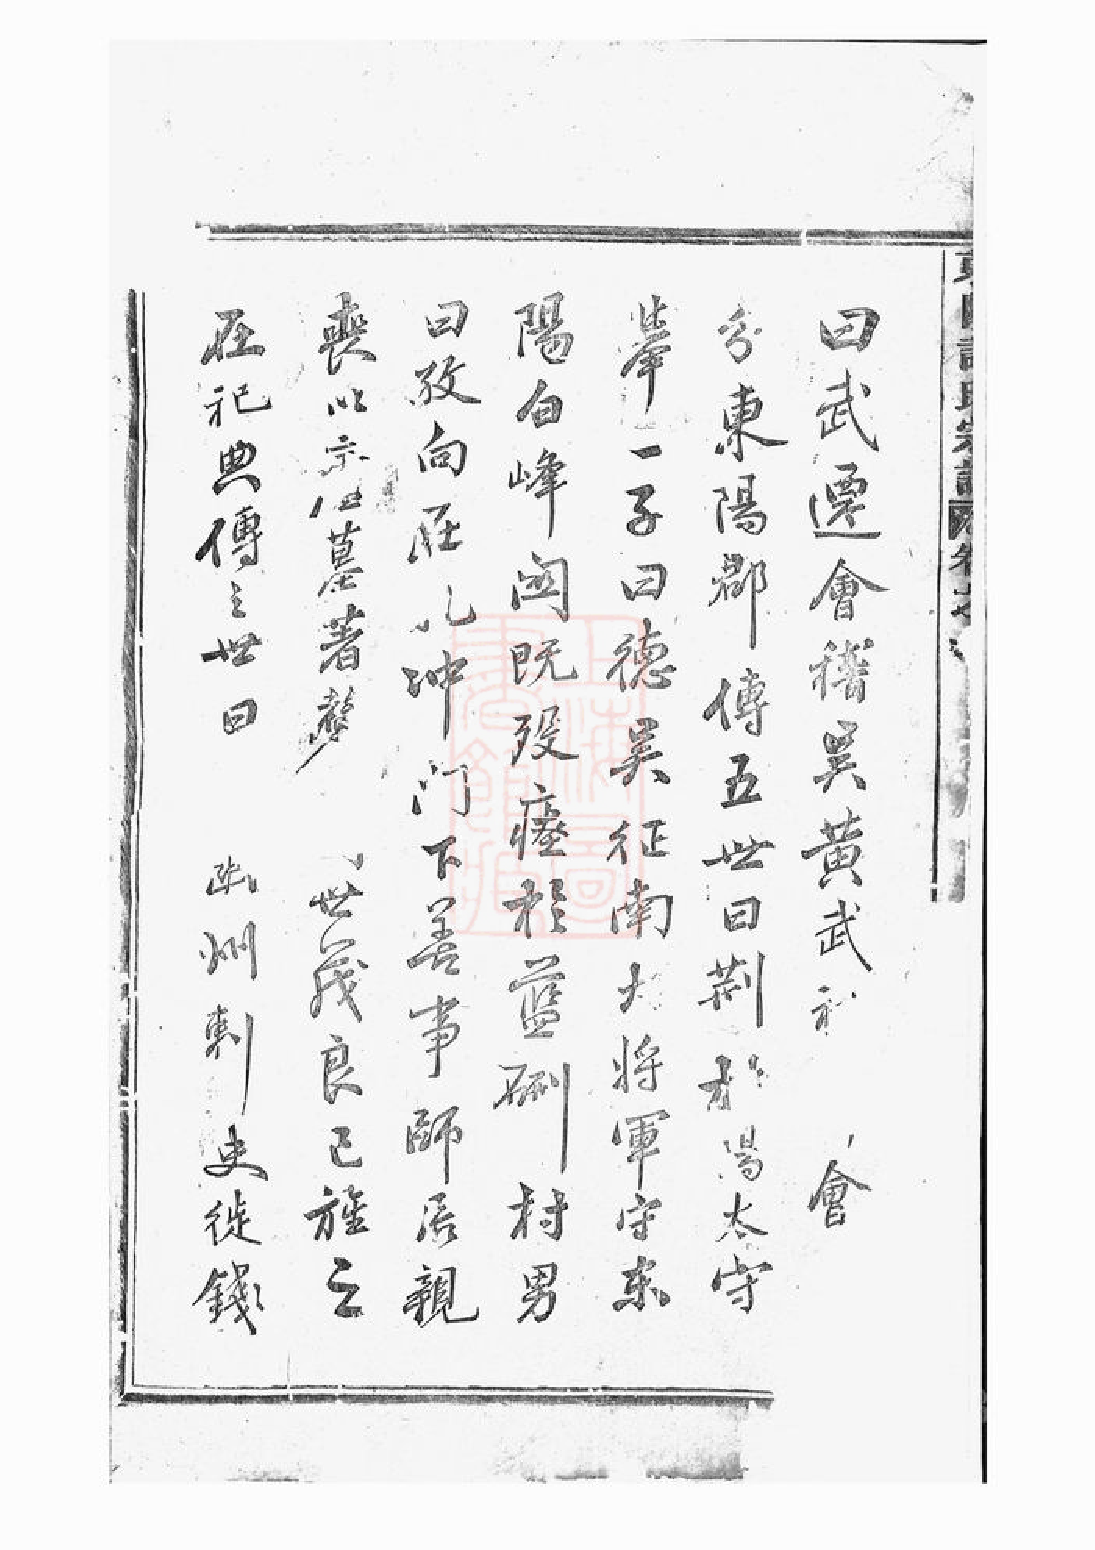 曰武遷會稽吳黃武 會
分東陽郡傳五世曰荆於陽太守
舉一子曰德吳征南大將軍守东
陽白峰閎既歿瘞於藍硎村男
曰孜向在孔冲門下善事師居親
喪以宗伯墓著聲 世茂良已旌之
在祀典傳之世曰 幽州刺史徙錢
東陽許氏宗譜 卷
上海圖書館藏